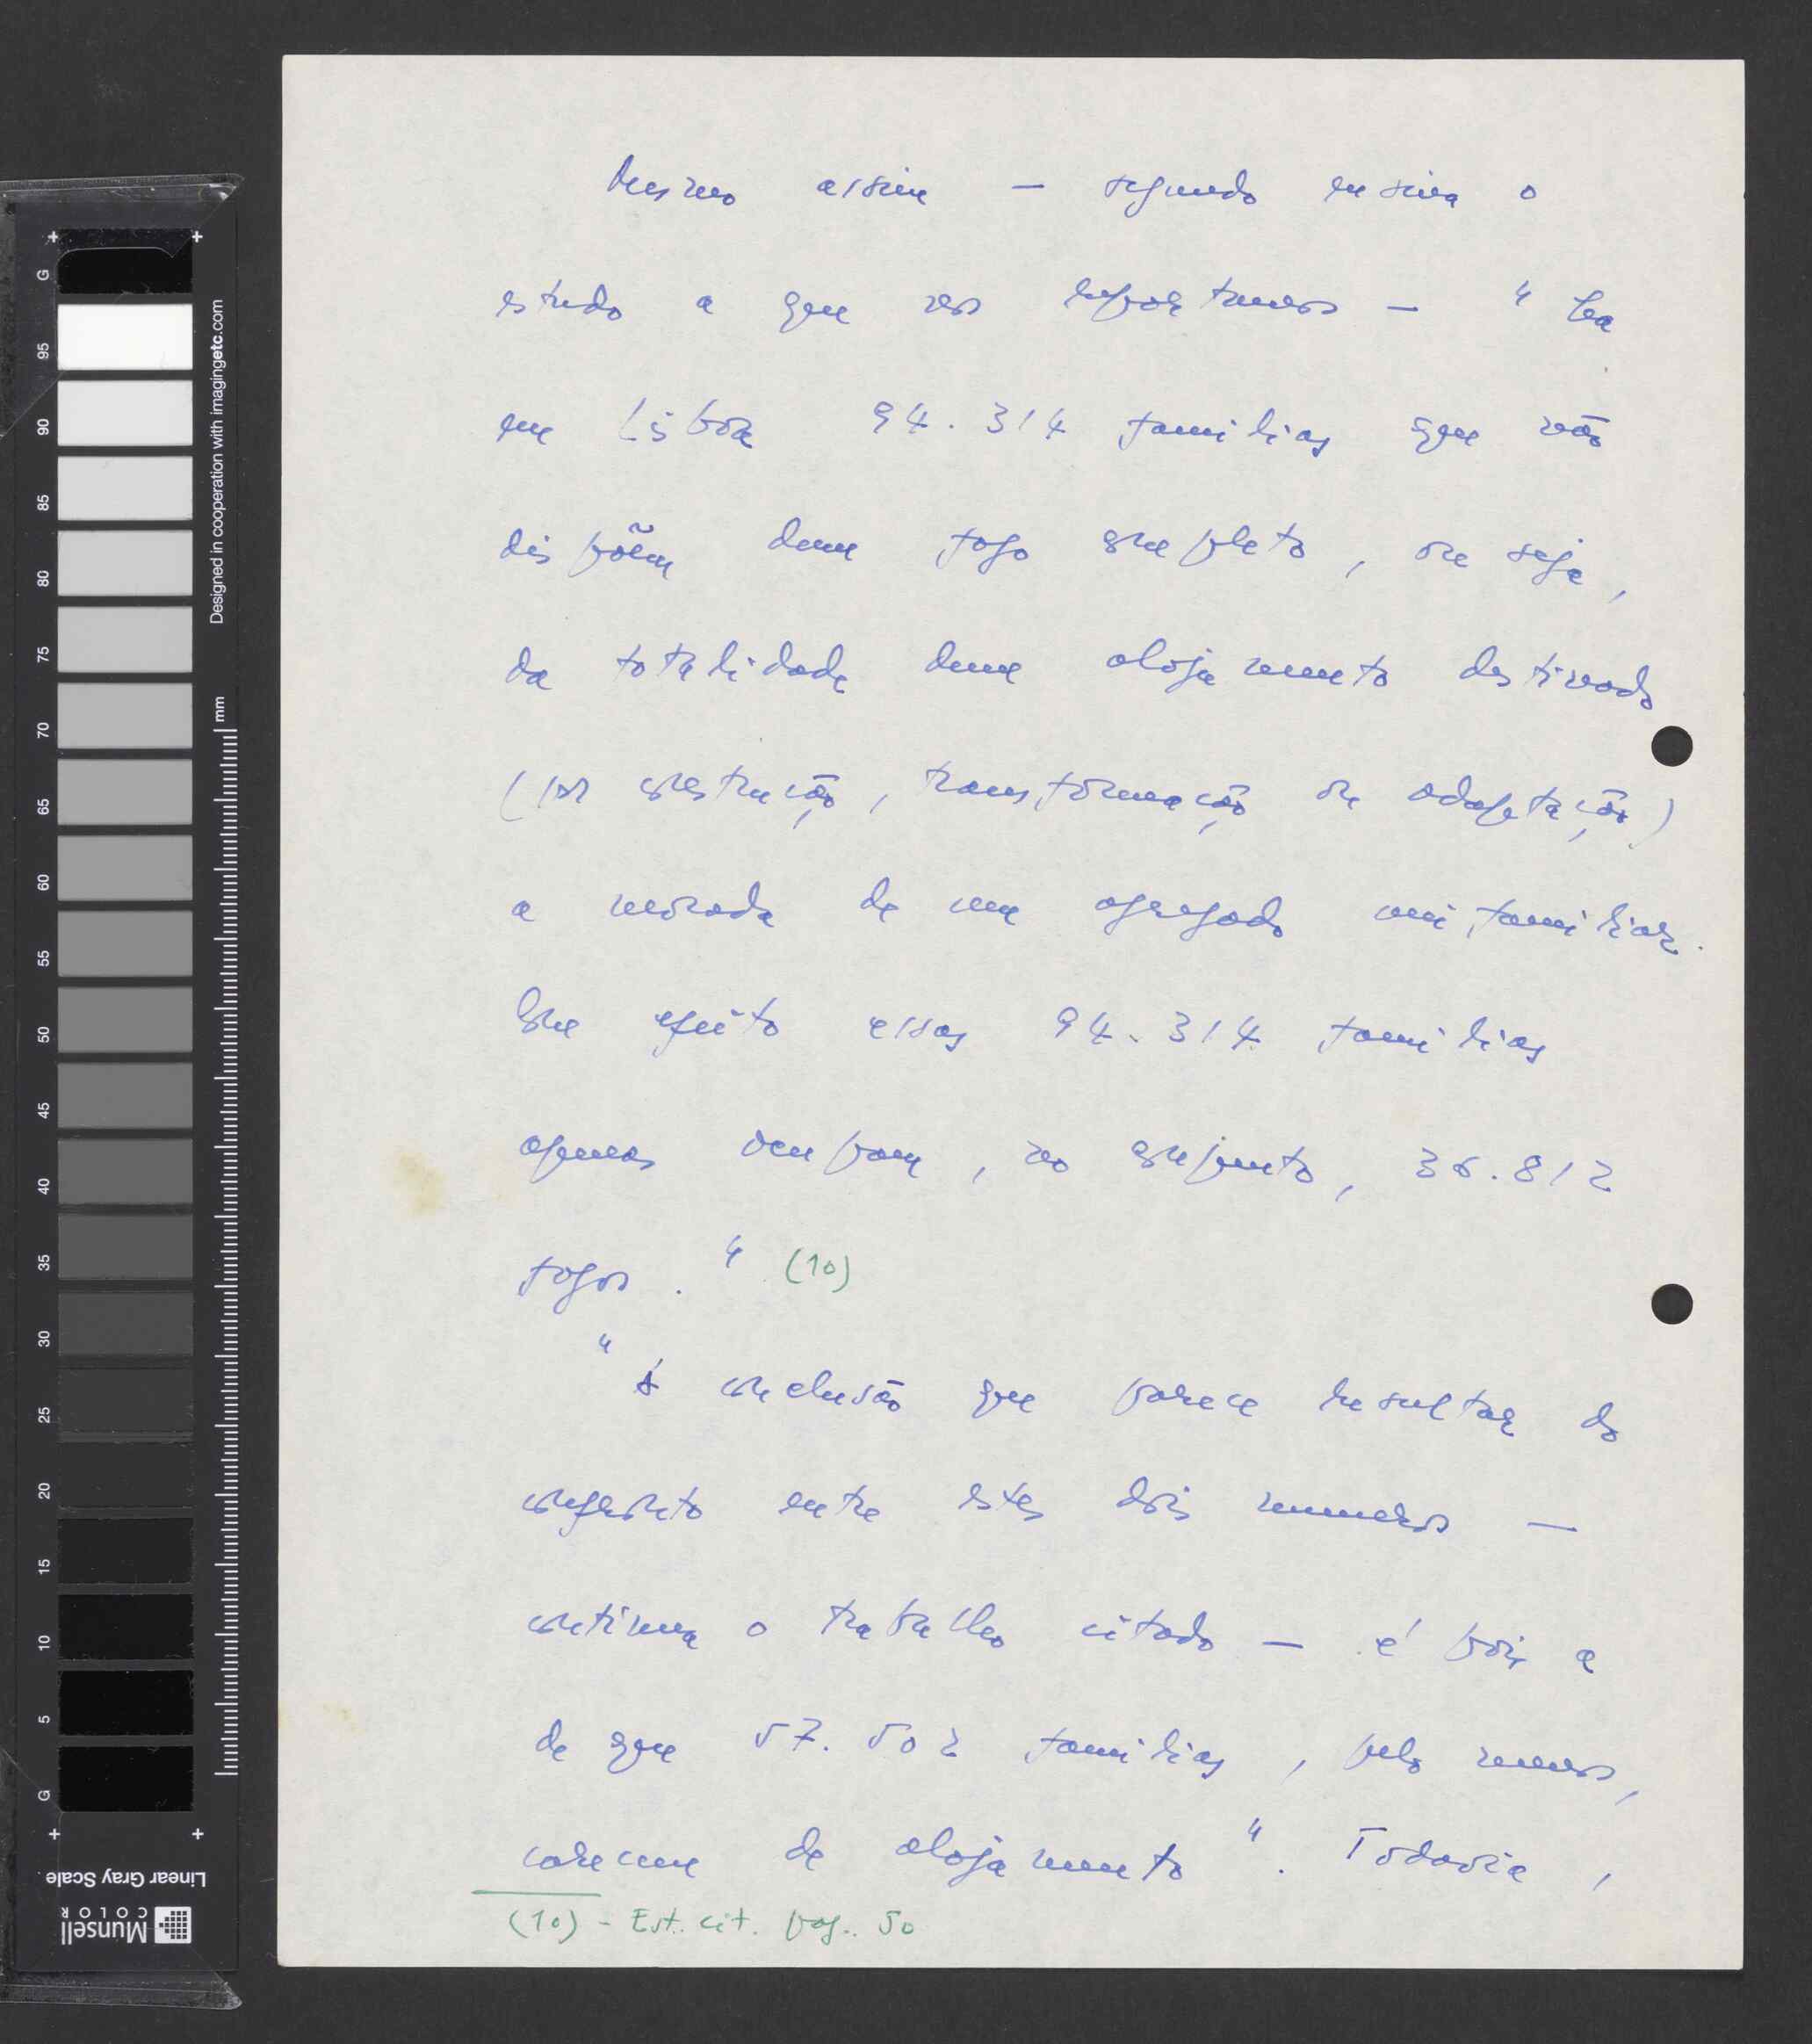 Mesmo assim — segundo ensina o
estudo a que nos reportamos — "ha
em Lisboa 94.314 familias que não
dispõem dum fogo completo, ou seja,
da totalidade dum alojamento destinado
(por construção, transformação ou adaptação)
a morada de um agregado unifamiliar.
Com efeito essas 94.314 familias
apenas ocupam, no conjunto, 36.812
fogos." (10)
"A conclusão que parece resultar do
confronto entre estes dois numeros —
continua o trabalho citado — é pois a
de que 57.502 familias, pelo menos,
carecem de alojamento". Todavia,
(10) - Est. cit. pag. 50
G 95 90 85 80 75 70 65 60 55 50 45 40 35 30 25 20 15 10 5 G
Designed in cooperation with imagingetc.com
mm
Linear Gray Scale
Munsell
COLOR